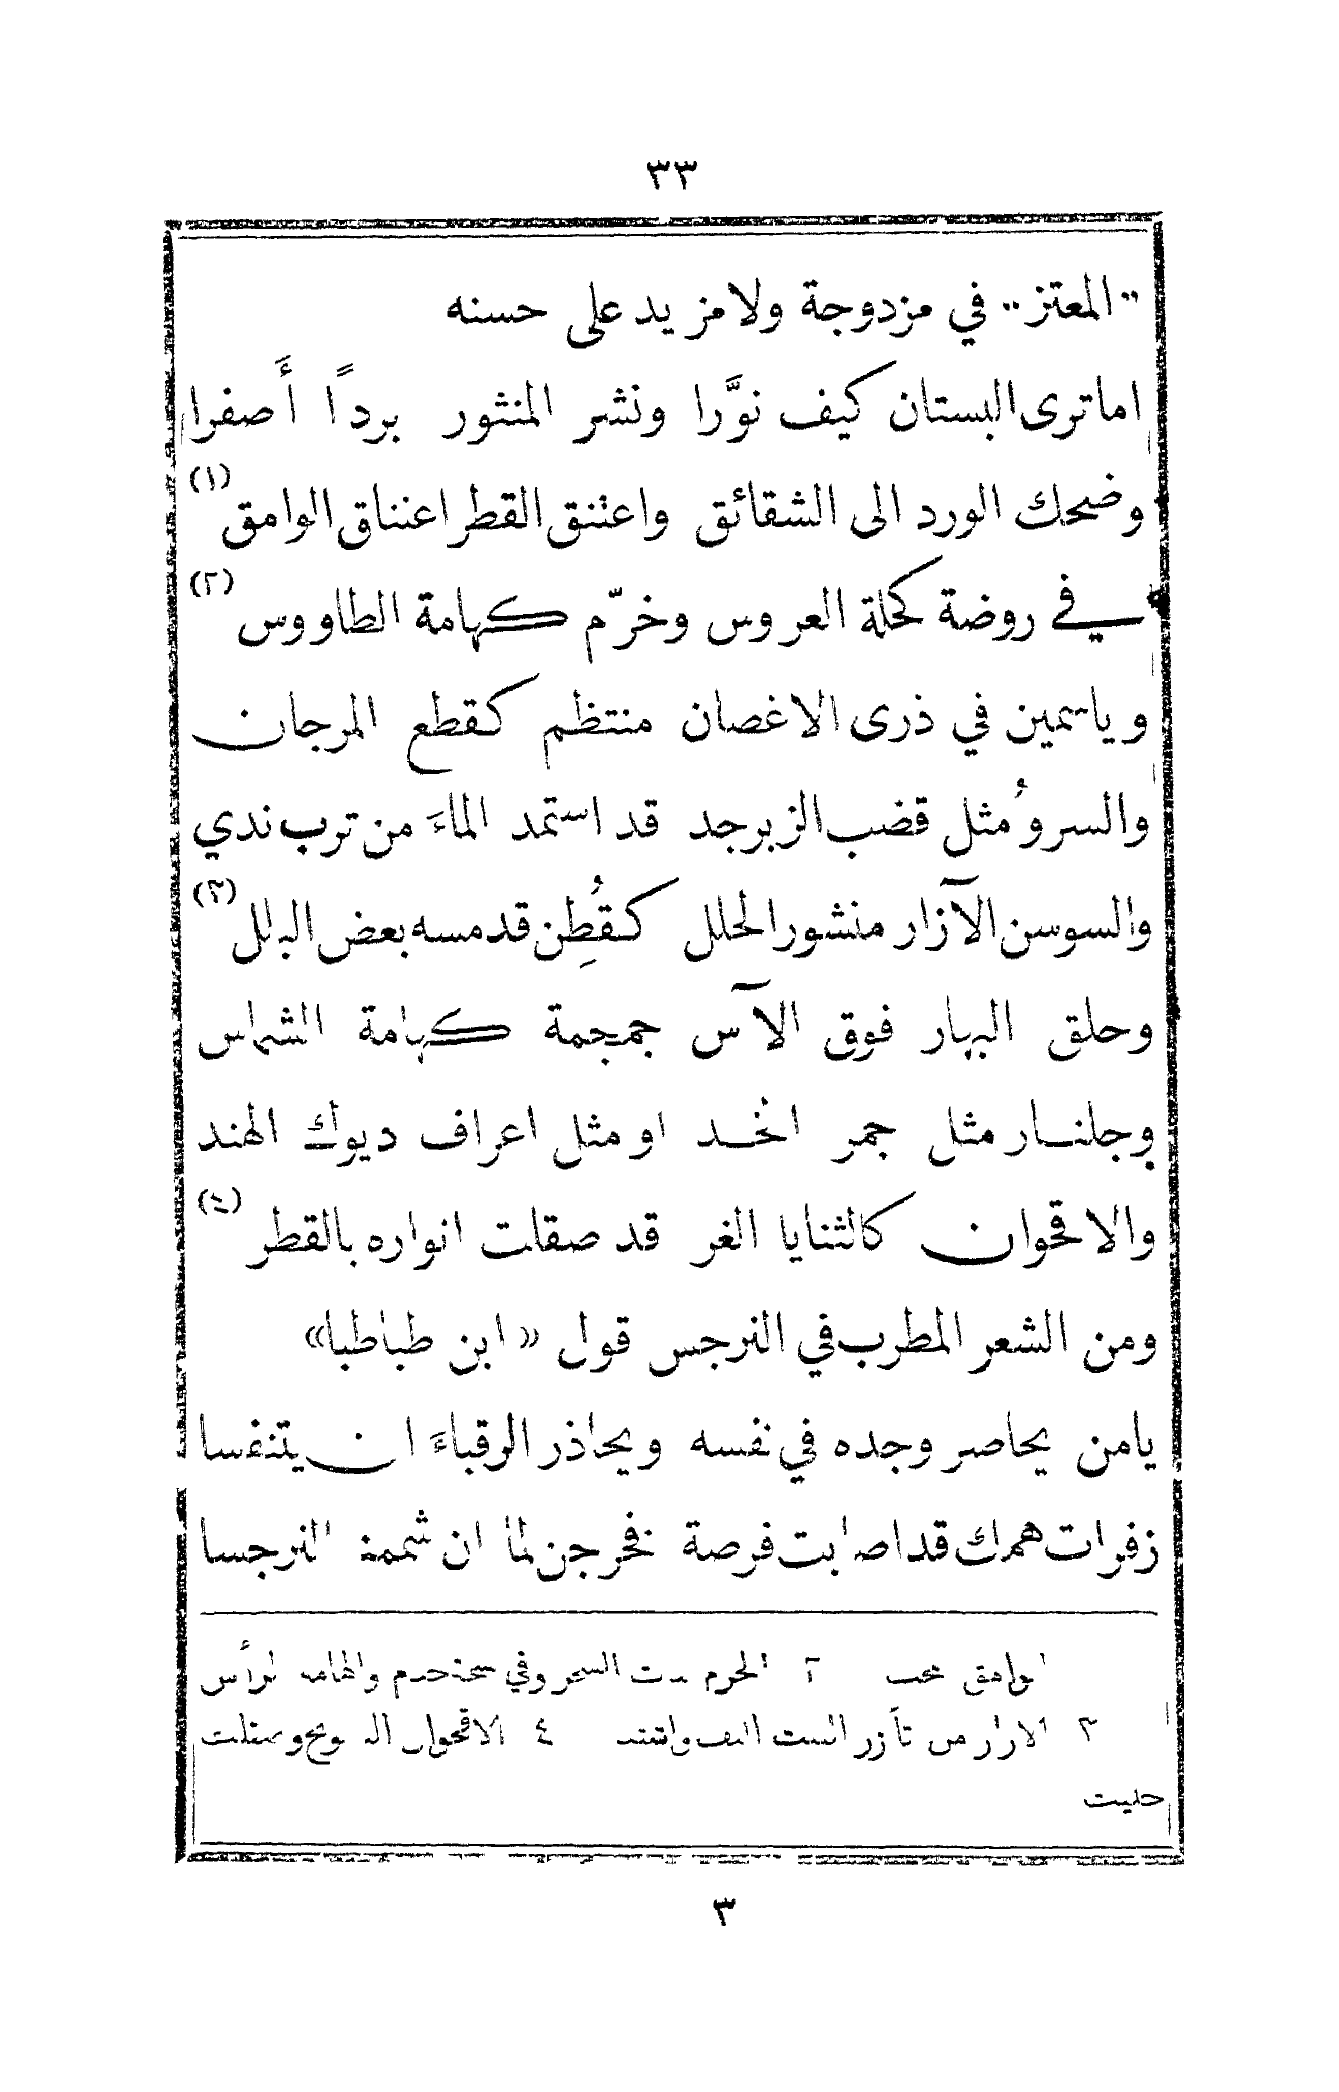 ٣٣
"المعتز" في مزدوجة ولامزيد على حسنه
اماترى البستان كيف نوَّرا ونشر المنثور بردًا أَصفرا
وضحك الورد الى الشقائق واعتنق القطر اعتناق الوامق (١)
في روضة كحلة العروس وخرّم كهامة الطاووس (٢)
وياسمين في ذرى الاغصان منتظم كقطع المرجان
والسروُ مثل قضب الزبرجد قد استمد الماءَ من ترب ندي
والسوسن الآزار منشور الحلل كقُطِن قد مسه بعض البلل (٣)
وحلق البهار فوق الآس جمجمة كهامة الشماس
وجلنار مثل جمر الخد او مثل اعراف ديوك الهند
والاقحوان كالثنايا الغر قد صقلت انواره بالقطر (٤)
ومن الشعر المطرب في النرجس قول «ابن طباطبا»
يامن يحاصر وجده في نفسه ويحاذر الرقباءَ ان يتنفسا
زفرات همك قد اصابت فرصة فخرجن لما ان شممت النرجسا
الوامق محب ٢ الخرم نبت الشجر وفي نسخة والهامة الرأس
٣ الازار من تأزر النبت التف واشتد ٤ الاقحوان البابونج وصقلت
جليت
٣